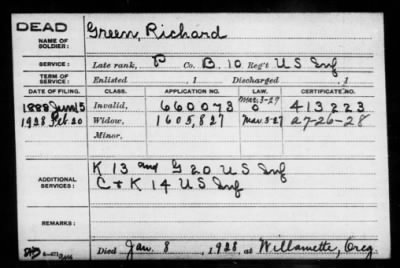 DEAD
NAME OF SOLDIER: Green, Richard
SERVICE: Late rank, P Co. B. 10 Reg't U S Inf
TERM OF SERVICE: Enlisted , 1 Discharged , 1
DATE OF FILING. CLASS. APPLICATION NO. LAW. CERTIFICATE NO.
Mar. 3-27
1888 Jun 15 Invalid, 660073 0 413223
1928 Feb 20 Widow, 1605,827 Mar 3-27 a7-26-28
Minor.
ADDITIONAL SERVICES: K 13 and G 20 U S Inf
C + K 14 U S Inf
REMARKS:
Died Jan. 8 , 1928, at Willamette, Oreg.